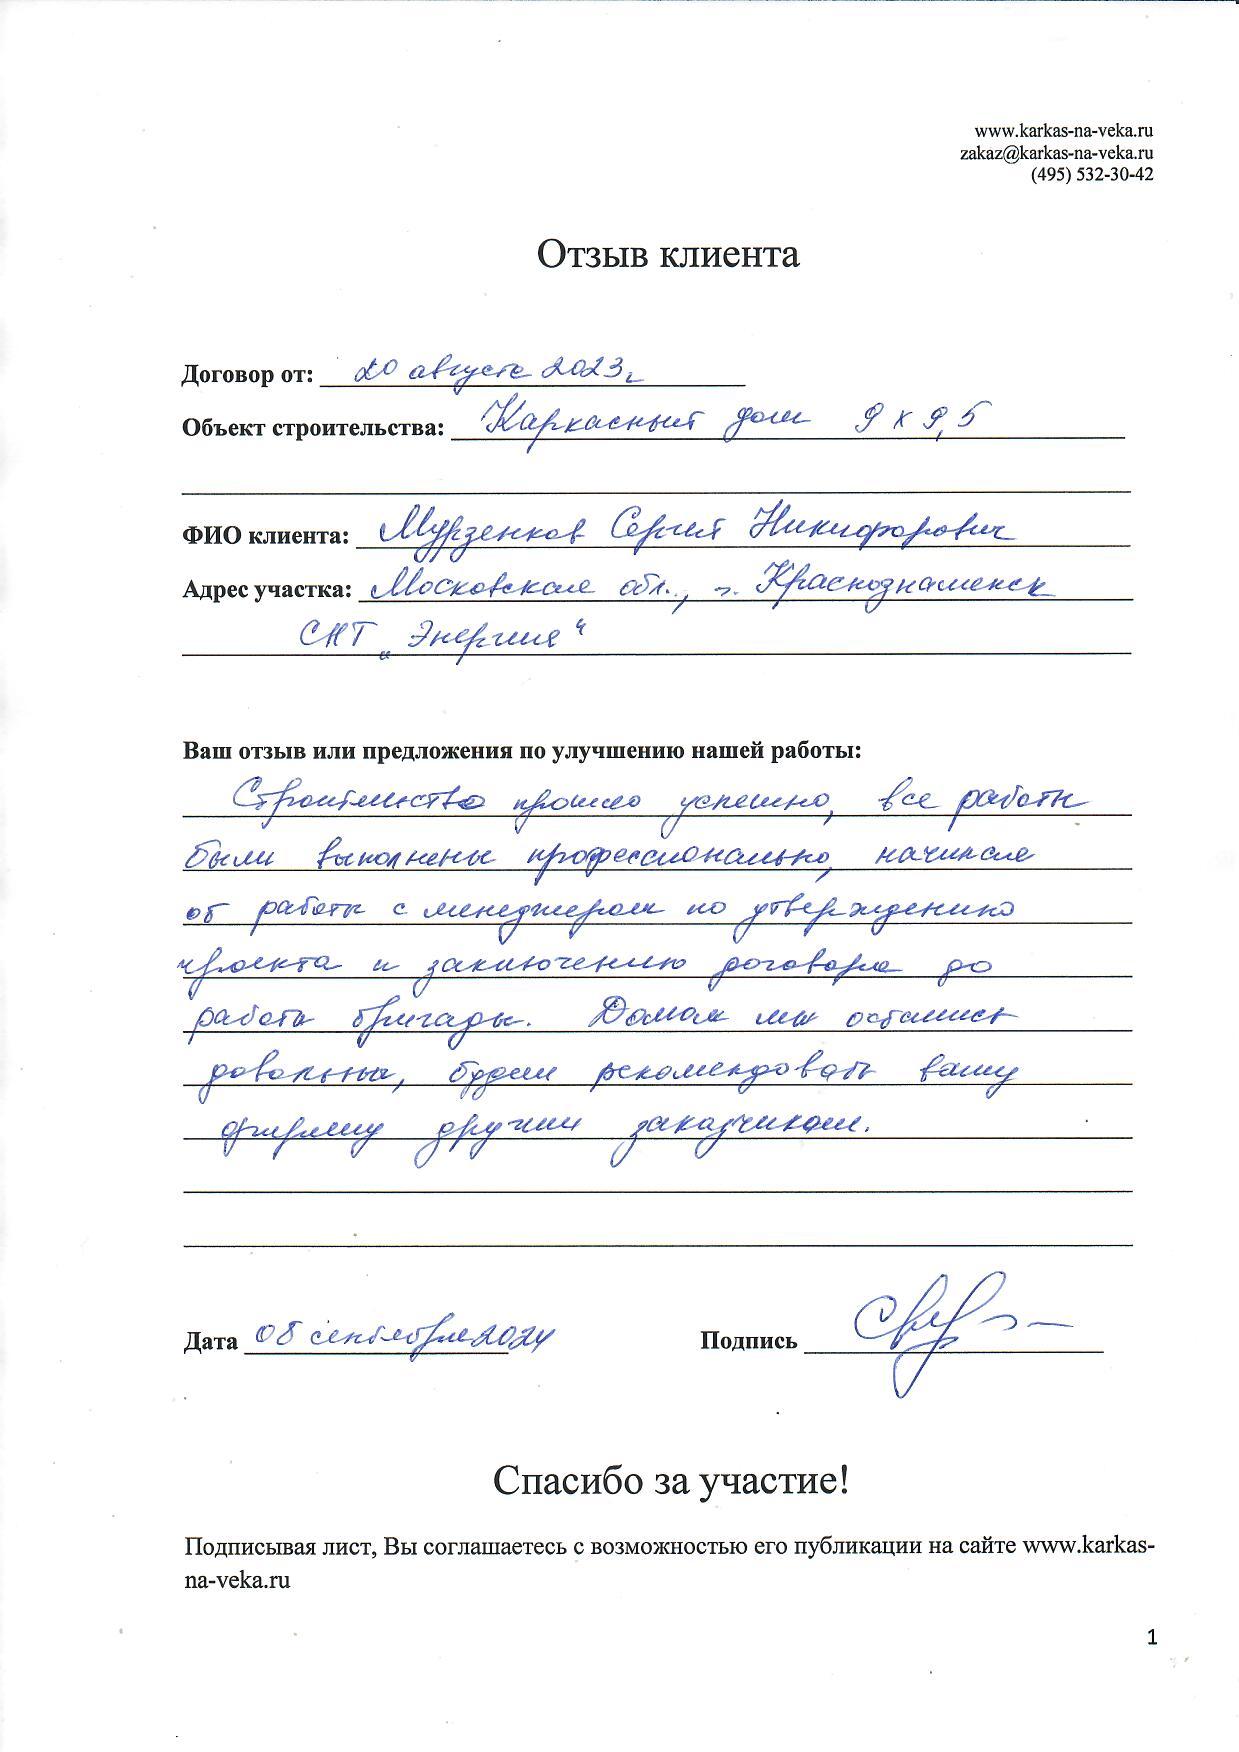 www.karkas-na-veka.ru
zakaz@karkas-na-veka.ru
(495) 532-30-42
Отзыв клиента
Договор от: 20 августа 2023г
Объект строительства: Каркасный дом 9 х 9,5
ФИО клиента: Мурзенков Сергей Никифорович
Адрес участка: Московская обл., г. Краснознаменск
СНТ „Энергия“
Ваш отзыв или предложения по улучшению нашей работы:
Строительство прошло успешно, все работы
были выполнены профессионально, начиная
от работы с менеджером по утверждению
проекта и заключению договора до
работы бригады. Домом мы остались
довольны, будем рекомендовать вашу
фирму другим заказчикам.
Дата 08 сентября 2024 Подпись
Спасибо за участие!
Подписывая лист, Вы соглашаетесь с возможностью его публикации на сайте www.karkas-
na-veka.ru
1